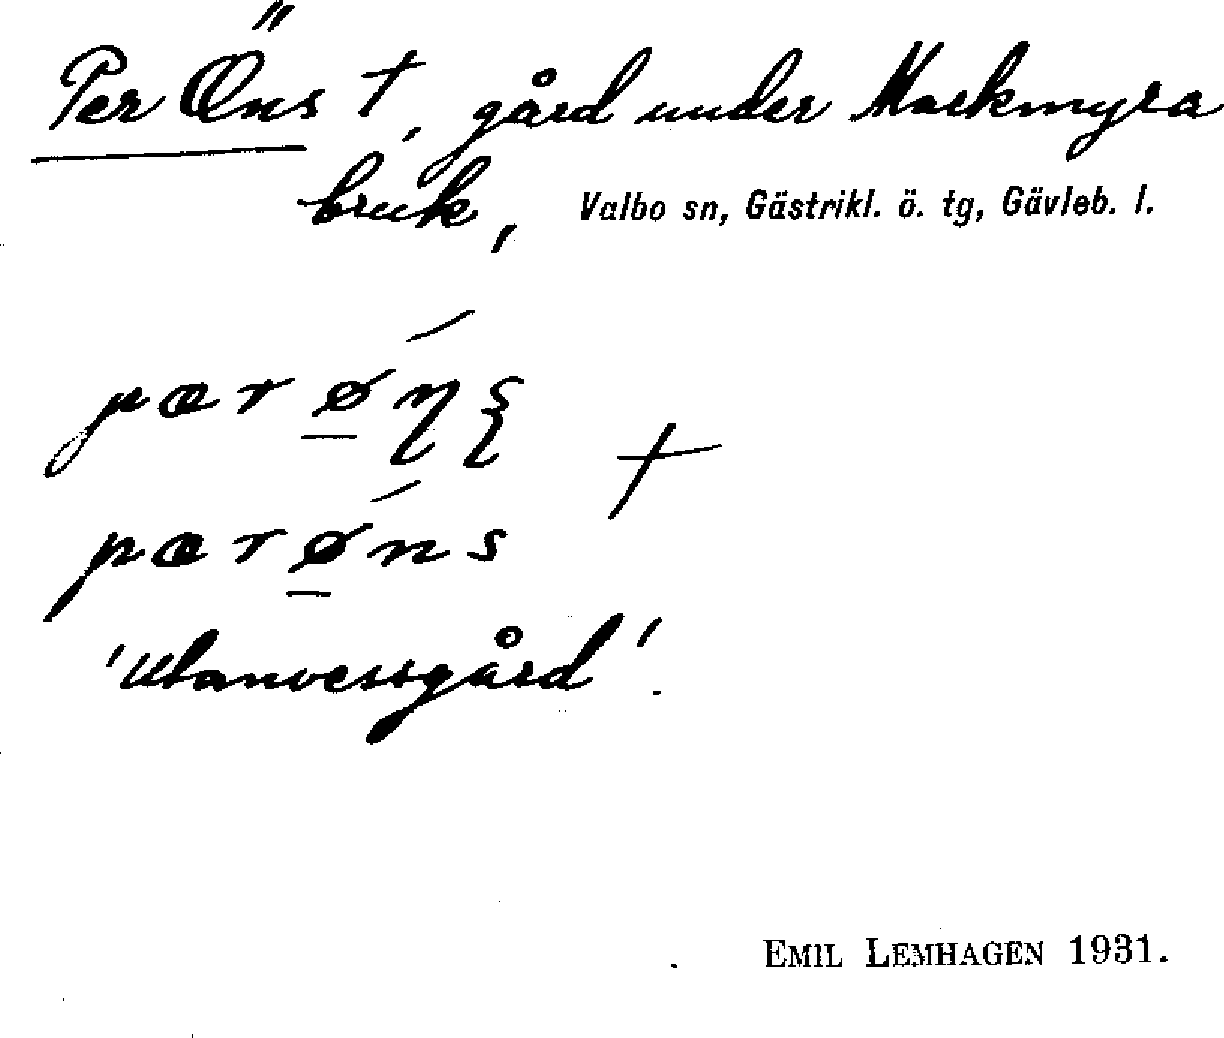 Per Öns †, gård under Mackmyra
bruk, Valbo sn, Gästrikl. ö. tg, Gävleb. l.
pærǿ̲ɳʂ †
pærǿ̲ns
'Utanvessgård'.
EMIL LEMHAGEN 1931.